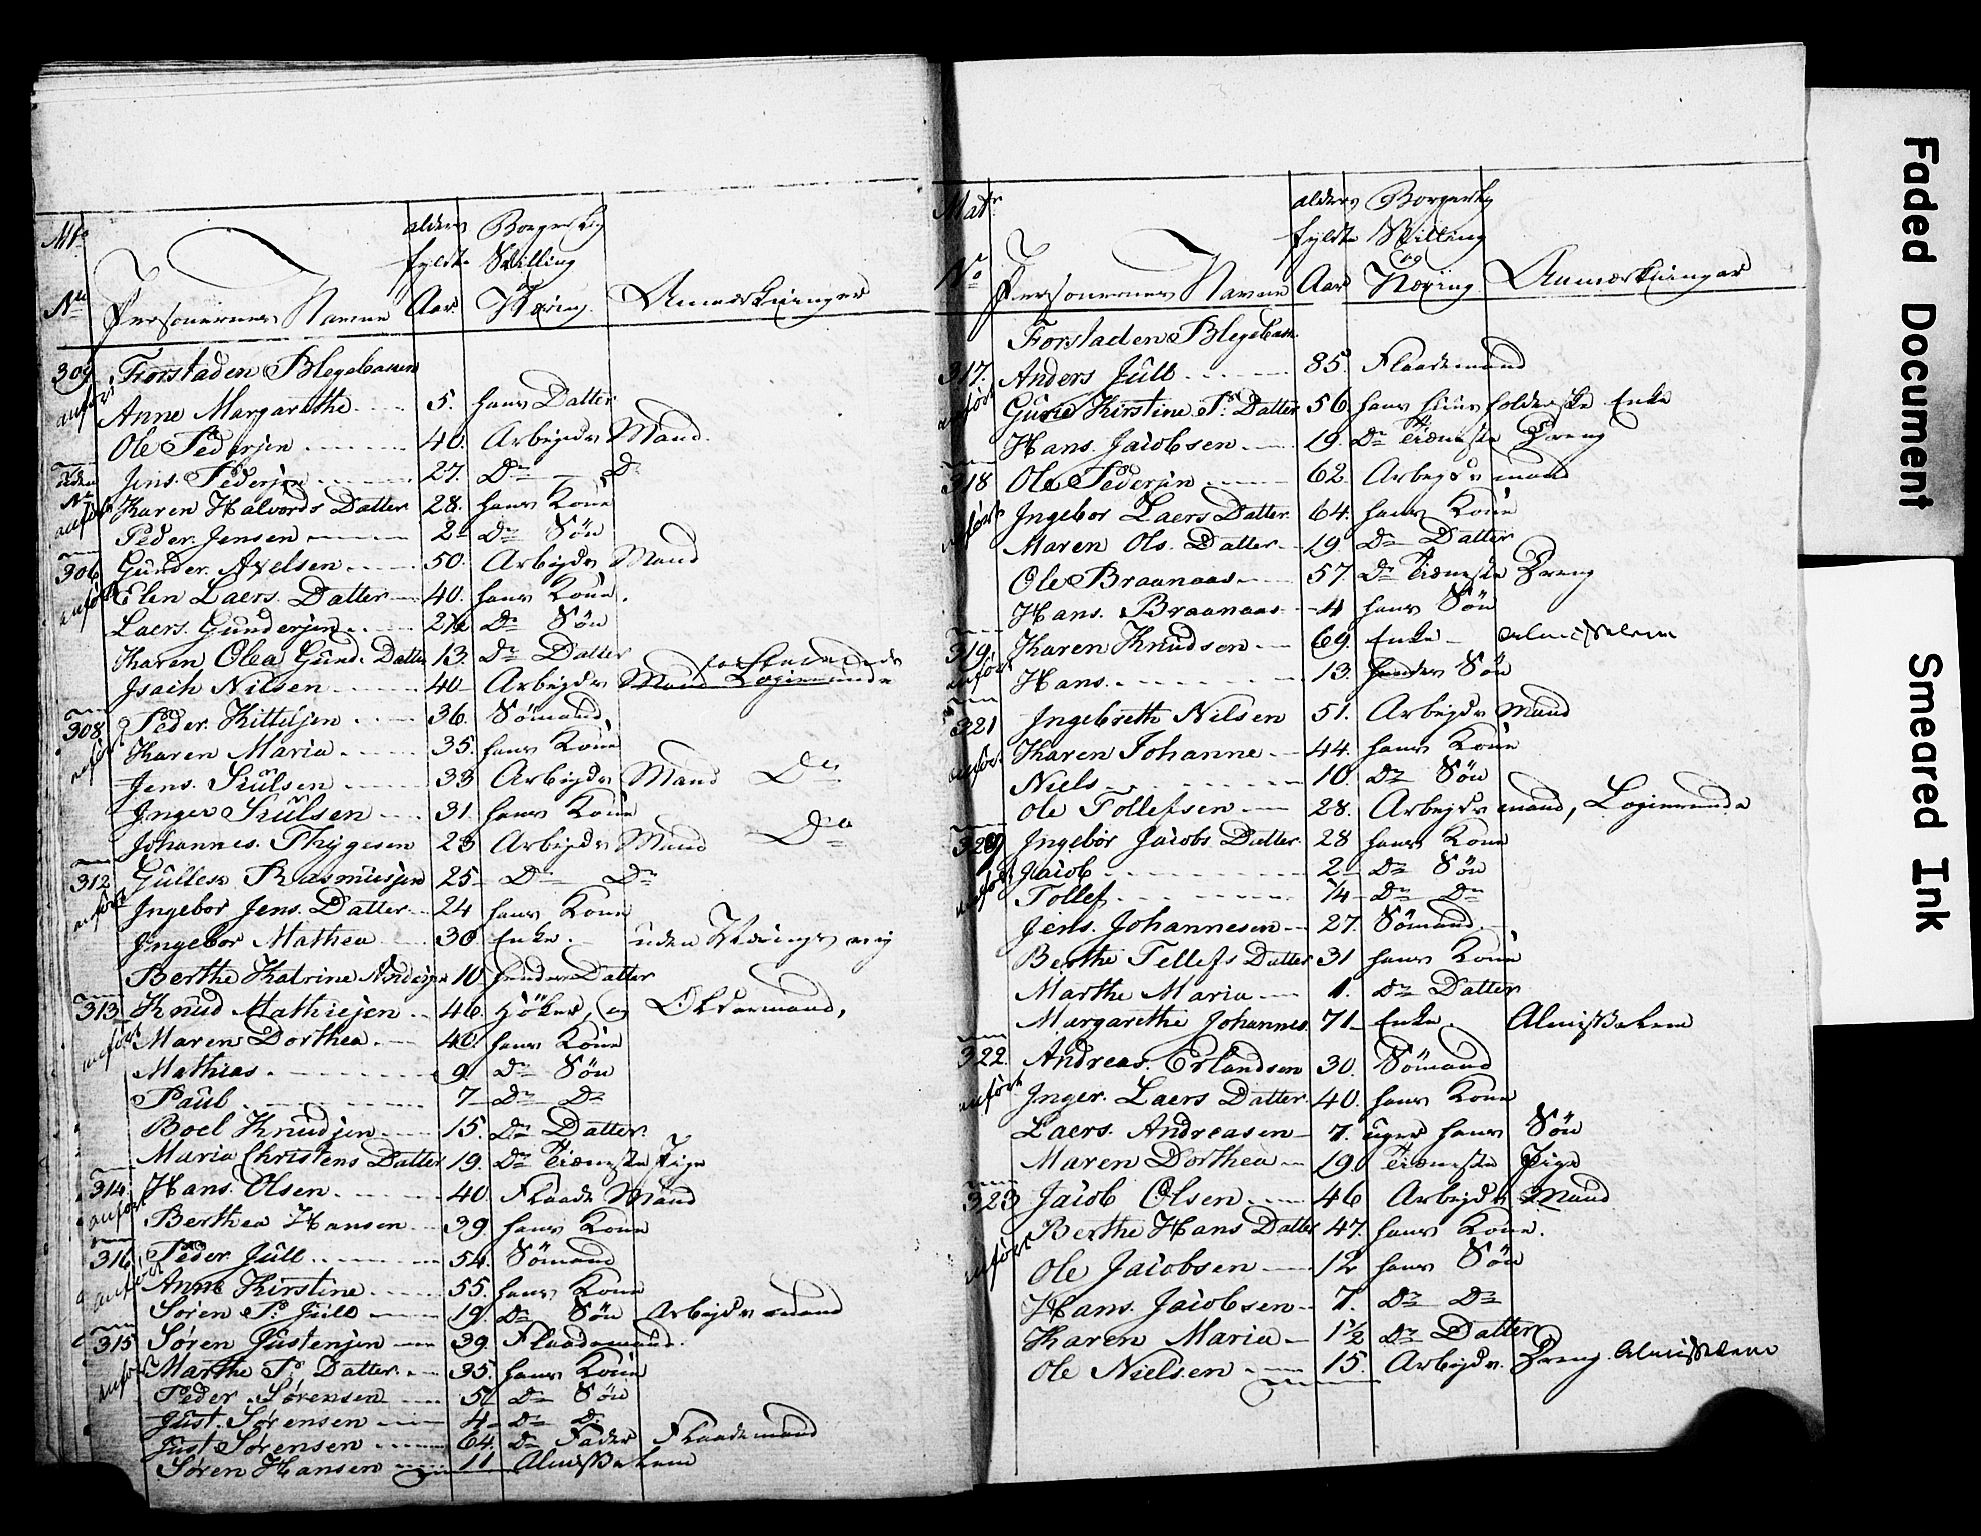 Mt. alders Borgerlig
fyldte Stilling
og
No Personernes Navne Aar Næring Anmærkninger
309 Forstaden Blegebakken
anført Anne Margarethe 5. hans Datter
Ole Pedersen 40. Arbejds Mand
uden Jens Pedersen 27. Do Do
No Karen Halvords Datter 28. hans Kone
anført Peder Jensen 2 Do Søn
306 Gunder Axelsen 50. Arbejds Mand
anført Elen Laers Datter 40. hans Kone
Laers Gundersen Do Søn
Karen Olea Gund. Datter 13. Do Datter
Isach Nilsen 40 Arbejds Mand Logerende
308 Peder Kittelsen 36. Sömand
anført Karen Maria 35. hans Kone
Jens Siülsen 33 Arbejds Mand Do
Inger Siülsen 31. hans Kone
Johannes Thygesen 23 Arbejds Mand Do
312 Gulles Rasmusen 25 Do Do
anført Ingebor Jens Datter 24 hans Kone
Ingebor Mathea 30 Enke. uden Nærings
Berthe Katrine 10. hendes Datter
313 Knud Mathiesen 46. Höker og
anført Maren Dorthea 40. hans Kone
Mathias 9. Do Søn
Paul 7 Do Do
Boel Knudsen 15. Do Datter
Maria Christens Datter 19. Do Tieneste Pige
314 Hans Olsen 40. Flaade Mand
anført Berthea Hansen 39. hans Kone
316 Peder Jull 54. Sömand
anført Anne Kirstine 55. hans Kone
Søren Ps Jull 19. Do Søn Arbejds mand
315 Søren Justensen 39. Flaademand.
anført Marthe Ps Datter 35. hans Kone
Peder Sørensen 5 Do Søn
Just Sørensen 4 Do Do
Just Sørensen 64. Do Fader Flaademand
Søren Hansen 11 Almisselem
Matr alders Borgerlig
fyldte Stilling
og
No Personernes Navne Aar Næring Anmærkninger
Forstaden Blegebakk
317. Anders Jull 85. Flaademand
anført Gune Kirstine Ps Datter 56. hans huusholderske Enke
Hans Jacobsen 19. Do Tieneste Dreng
318 Ole Pedersen 62. Arbejds mand
anført Ingebor Laers Datter 64. hans Kone
Maren Ols. Datter 19 Do Datter
Ole Braanaas 57. Do Tieneste Dreng
Hans Braanaas 4 hans Søn
319. Karen Knudsen 69. Enke Almisselem
anført Hans 13. hendes Søn
321 Ingebreth Nilsen 51. Arbejds Mand
anført Karen Johanne 44. hans Kone
Niels 10. Do Søn
Ole Tollefsen 28. Arbejds mand, Logerende
Ingebor Jacobs Datter 28 hans Kone
anført Jacob 2 Do Søn
Tollef Do Do
Jens Johannesen 27. Sömand
Berthe Tellefs Datter 31 hans Kone
Marthe Maria 1. Do Datter
Margarethe Johannes 71 Enke Almisselem
322. Andreas Erlandsen 30. Sömand
anført Inger Laers Datter 40. hans Kone
Laers Andreasen 7. uger hans Søn
Maren Dorthea 19. Tieneste Pige
323 Jacob Olsen 46 Arbejds Mand
anført Berthe Hans Datter 47. hans Kone.
Ole Jacobsen 12 hans Søn
Hans Jacobsen 7. Do Do
Karen Maria 1½ Do Datter
Ole Nielsen 15. Arbejds Dreng. Almisselem
Faded Document
Smeared Ink